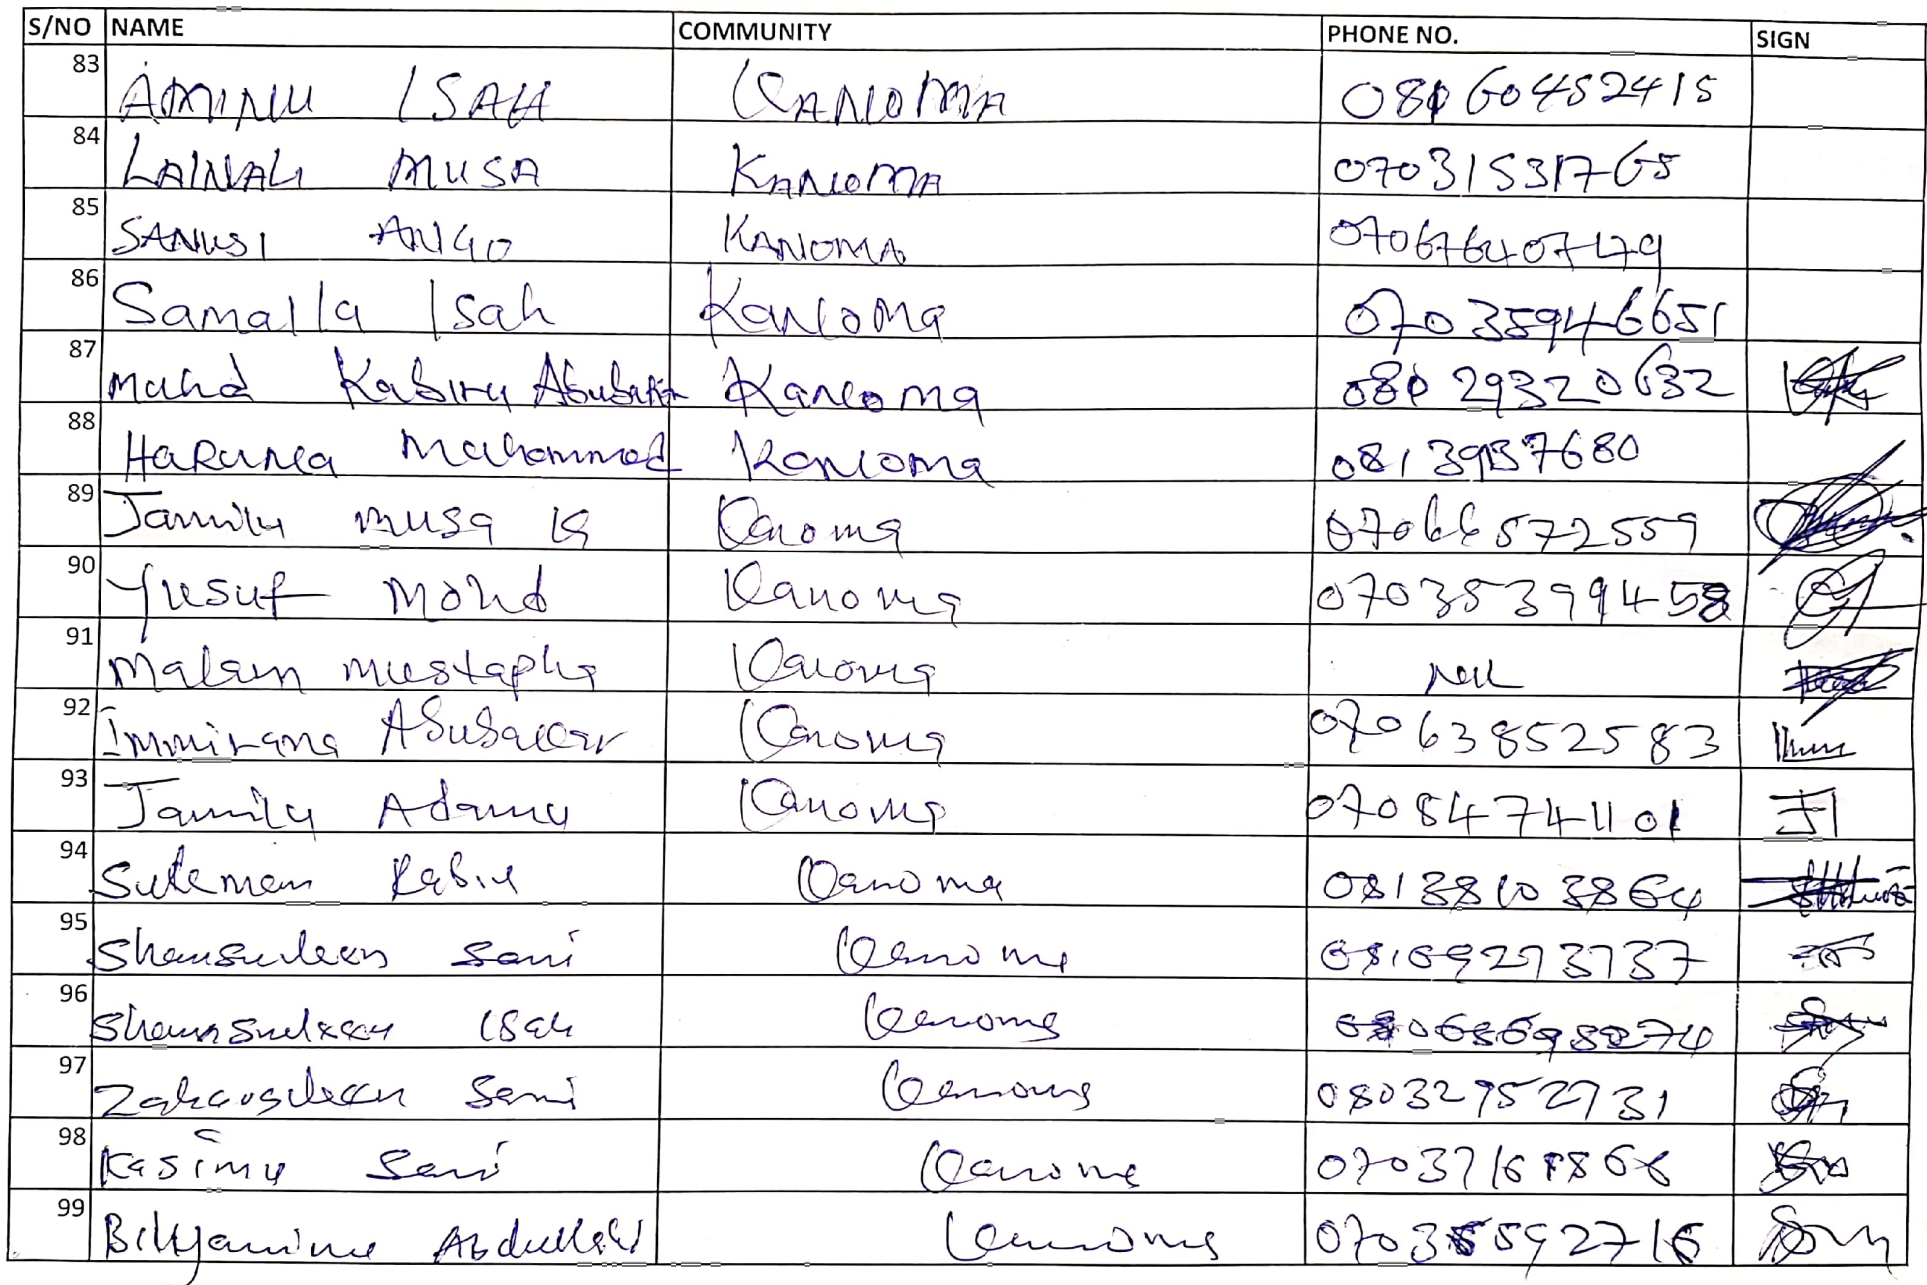 S/NO NAME COMMUNITY PHONE NO. SIGN
83 AMINU ISAH KANOMA 08160452415
84 LAWALI MUSA KANOMA 07031531765
85 SANUSI ANGO KANOMA 07067640749
86 Samaila Isah Kanoma 07035946651
87 Muhd Kabiru Abubakar Kanoma 08029320632
88 HARUNA Mahammad Kanoma 08139137680
89 Jamilu musa K Kanoma 07066572559
90 Yusuf Mohd Kanoma 07035399458
91 Malam mustapha Kanoma Nill
92 Immirana Abubakar Kanoma 07063852583
93 Jamilu Adamu Kanoma 07084741101 JA
94 Suleman Kabiru Kanoma 08138103864
95 Shamsudeen Sani Kanoma
96 Shamsudeen Isah Kanoma
97 Sani Kanoma 08032952731
98 Kasimu Sani Kanoma
99 Bilyaminu Abdullahi Kanoma